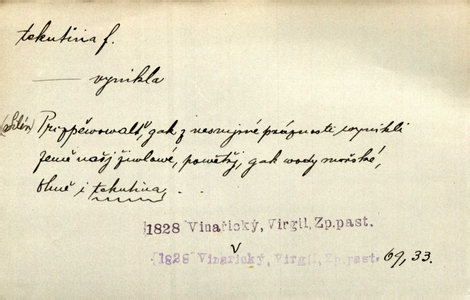 tekutina f.
— vynikla
(Silén) Připěwowalť, gak z nesmjrné prázdnosti wynikli
Země našj žiwlowé, powětřj, gak wody mořské,
Ohně i tekutina, . . .
1828 Vinařický, Virgil, Zp.past.
1828 Vinařický, Virgil, Zp.past. 69, 33.